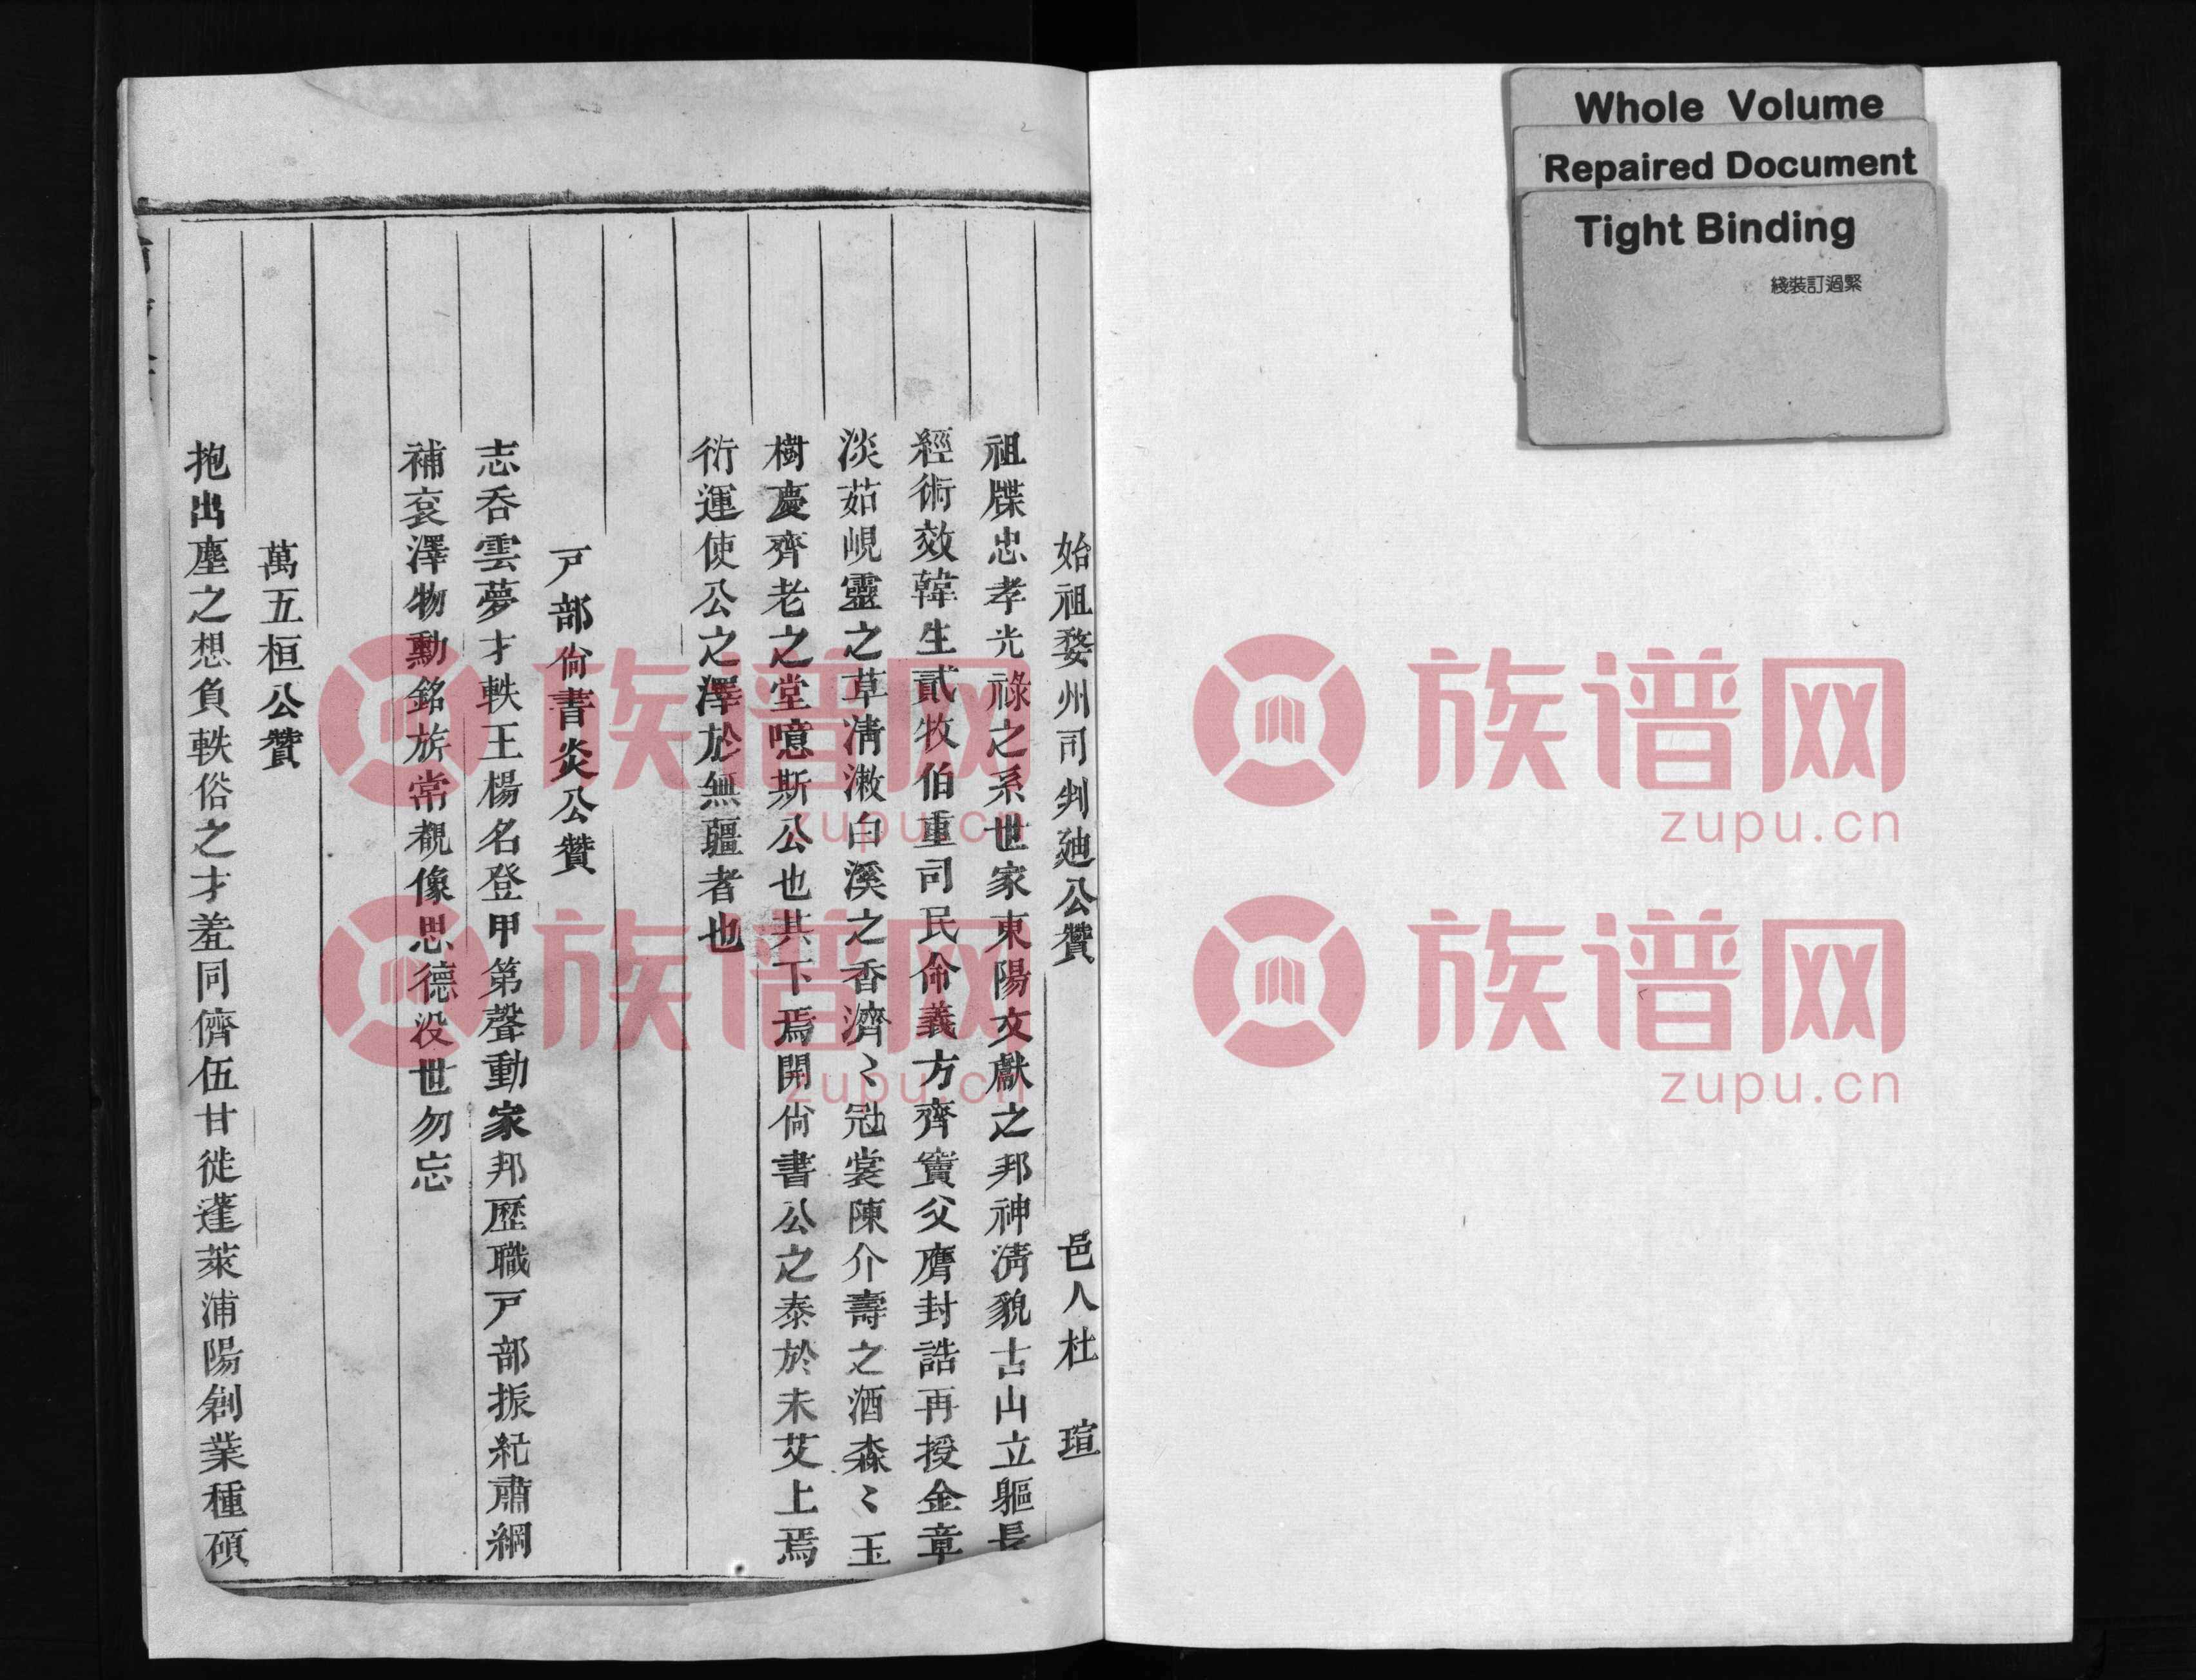 Whole Volume
Repaired Document
Tight Binding
綫裝訂過緊
始祖婺州司判廸公贊 邑人杜 瑄
祖牒忠孝光祿之系世家東陽文獻之邦神清貌古山立軀長
經術效韓生貳牧伯重司民命義方齊竇父膺封誥再授金章
淡茹峴靈之草清漱白溪之香濟〻冠裳陳介壽之酒森〻玉
樹慶齊老之堂噫斯公也其下焉開尙書公之泰於未艾上焉
衍運使公之澤於無疆者也
戸部尙書炎公贊
志呑雲夢才軼王楊名登甲第聲動家邦歷職戸部振紀肅綱
補袞澤物勳銘旂常覩像思德没世勿忘
萬五桓公贊
抱出塵之想負軼俗之才羞同儕伍甘徙蓬萊浦陽創業種碩
族谱网
zupu.cn
族谱网
zupu.cn
族谱网
zupu.cn
族谱网
zupu.cn